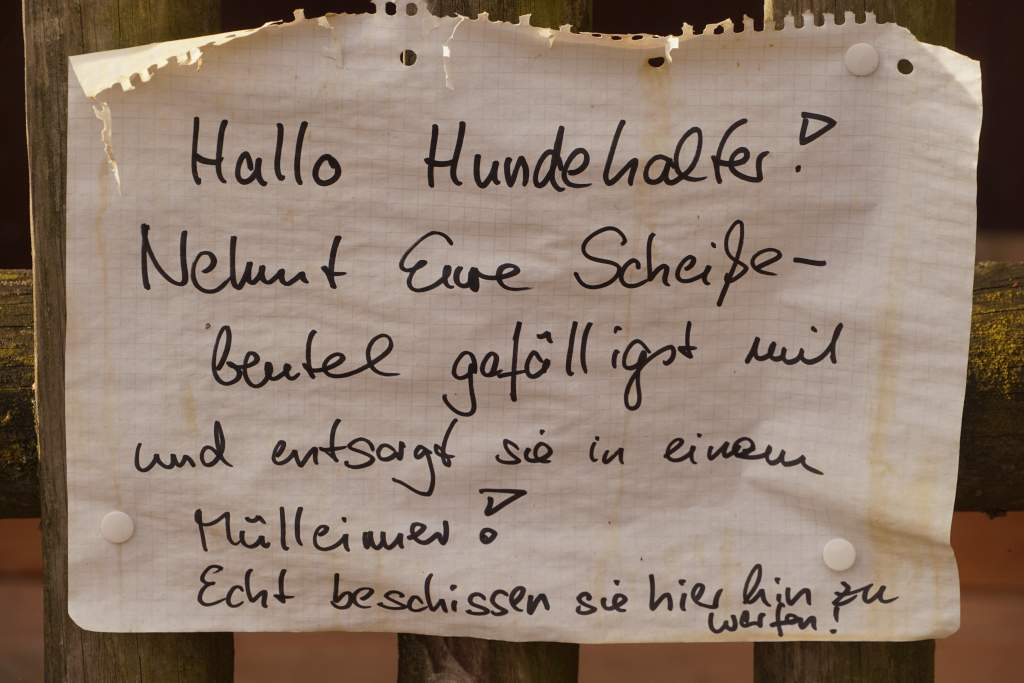 Hallo Hundehalter!
Nehmt Eure Scheiße-
beutel gefälligst mit
und entsorgt sie in einem
Mülleimer!
Echt beschissen sie hier hin zu
werfen!